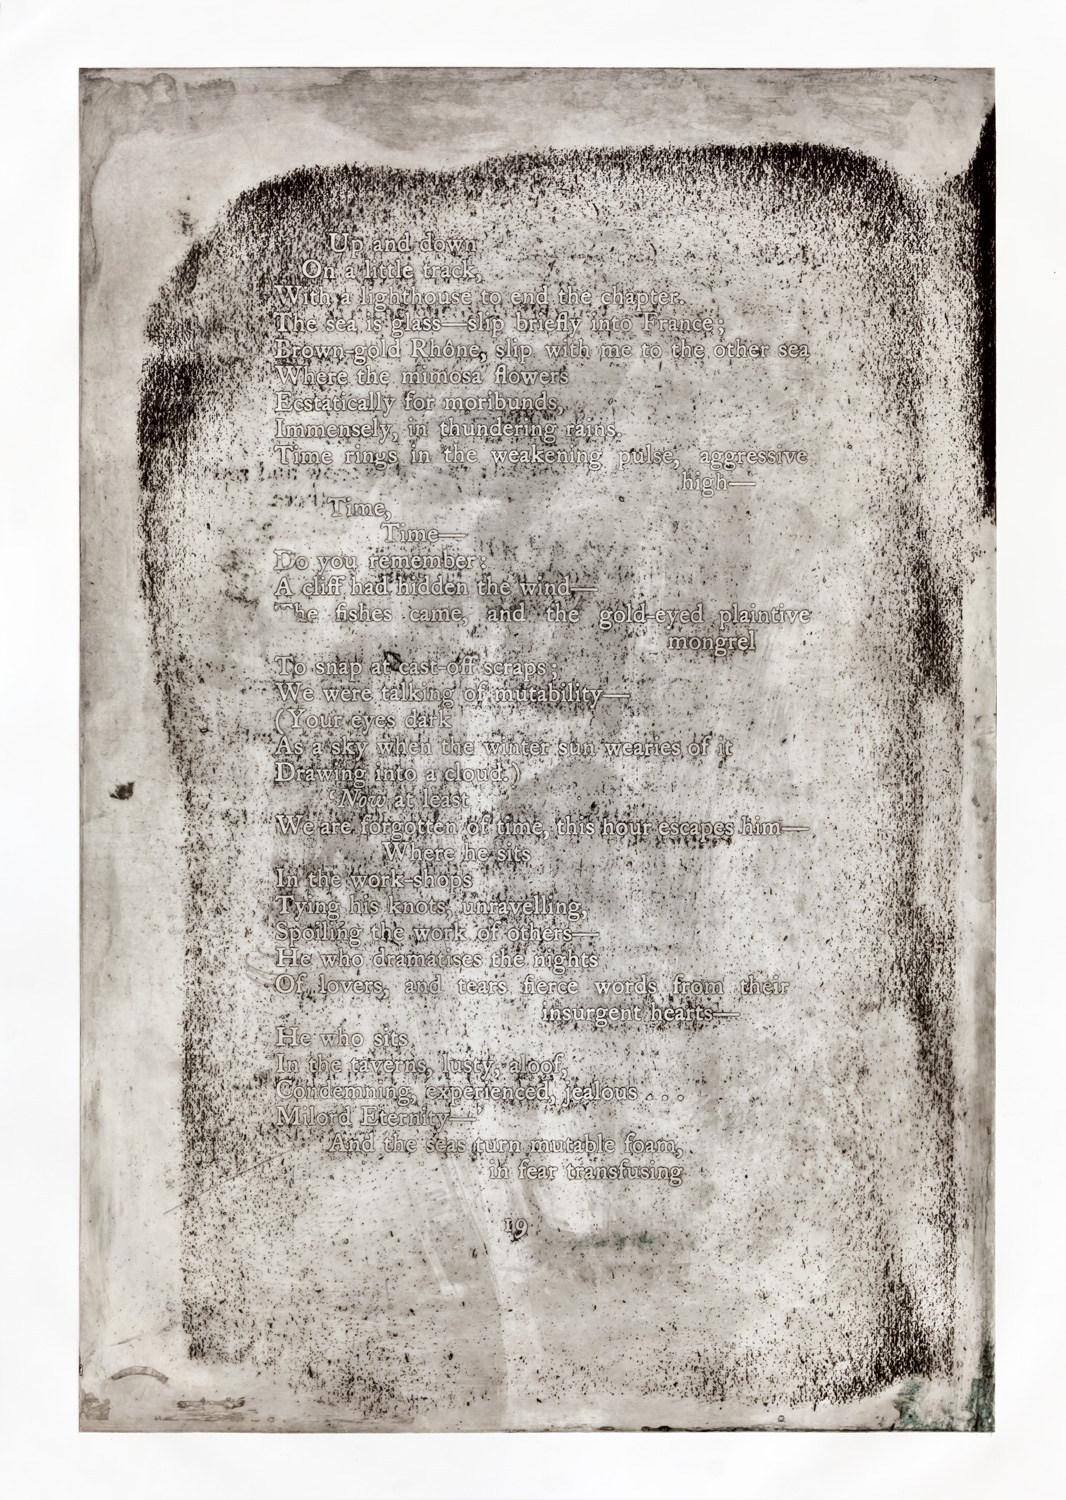 Up and down
On a little track,
With a lighthouse to end the chapter.
The sea is glass—slip briefly into France;
Brown-gold Rhône, slip with me to the other sea
Where the mimosa flowers
Ecstatically for moribunds,
Immensely, in thundering rains.
Time rings in the weakening pulse, aggressive
high—
Time,
Time—
Do you remember:
A cliff had hidden the wind—
The fishes came, and the gold-eyed plaintive
mongrel
To snap at cast-off scraps;
We were talking of mutability—
(Your eyes dark
As a sky when the winter sun wearies of it
Drawing into a cloud.)
‘Now at least
We are forgotten of time, this hour escapes him—
Where he sits
In the work-shops
Tying his knots, unravelling,
Spoiling the work of others—
He who dramatises the nights
Of lovers, and tears fierce words from their
insurgent hearts—
He who sits
In the taverns, lusty, aloof,
Condemning, experienced, jealous . . .
Milord Eternity—’
And the seas turn mutable foam,
in fear transfusing
19